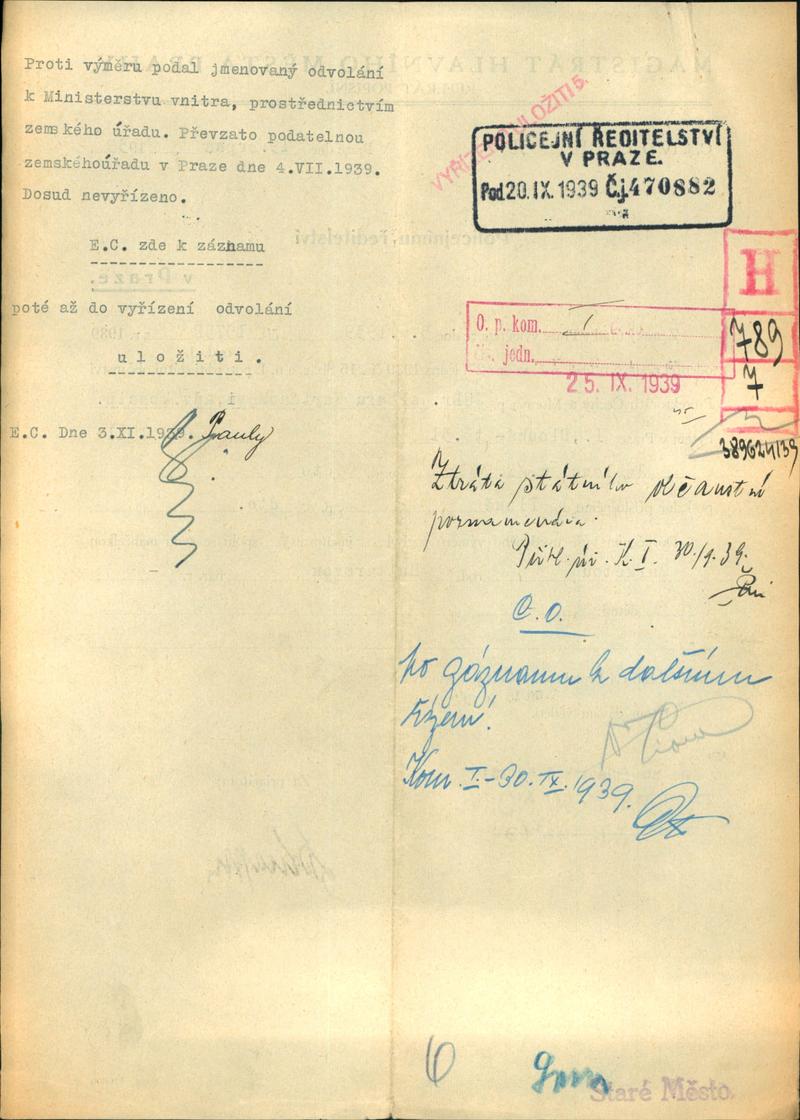 Proti výměru podal jmenovaný odvolání
k Ministerstvu vnitra, prostřednictvím
zemského úřadu. Převzato podatelnou
zemskéhoúřadu v Praze dne 4.VII.1939.
Dosud nevyřízeno.
E.C. zde k záznamu
poté až do vyřízení odvolání
uložiti.
E.C. Dne 3.XI.1939. Pauly
POLICEJNÍ ŘEDITELSTVÍ
V PRAZE.
Pod 20.IX.1939 Čj. 470882
H
789
7
O. p. kom. I
Čís. jedn.
25. IX. 1939
Ztráta státního občanství
poznamenána.
K. I. 30/9.39.
C.O.
ku záznamu k dalšímu
řízení!
Kom. I - 30. IX. 1939.
Staré Město.